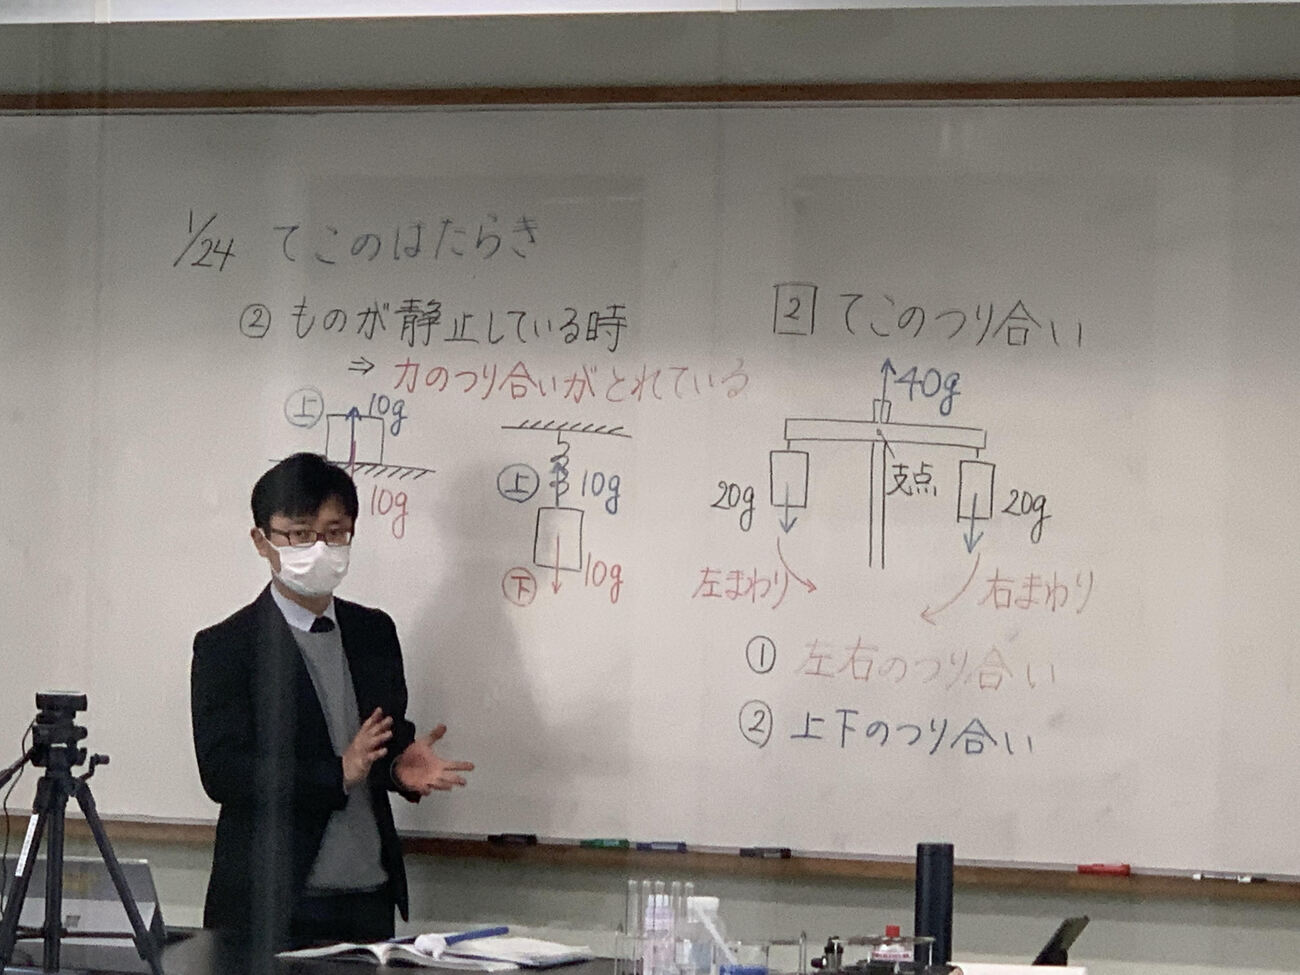 1/24 てこのはたらき
② ものが静止している時
⇒ 力のつり合いがとれている
上 10g
10g
上 10g
下 10g
2 てこのつり合い
40g
支点
20g
20g
左まわり
右まわり
① 左右のつり合い
② 上下のつり合い